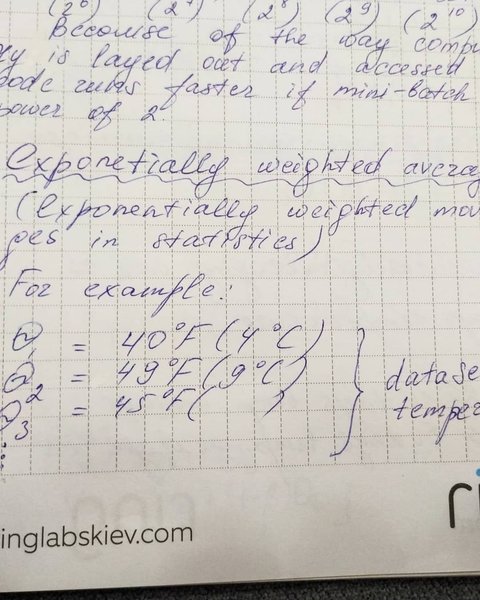 (2⁶) (2⁷) (2⁸) (2⁹) (2¹⁰)
Because of the way compu
ry is layed out and accessed
code runs faster if mini-batch
power of 2.
Exponetially weighted averag
(Exponentially weighted mov
ges in statistics)
For example:
θ₁ = 40°F (4°C)
θ₂ = 49°F (9°C) datase
θ₃ = 45°F ( ) temper
ri
inglabskiev.com